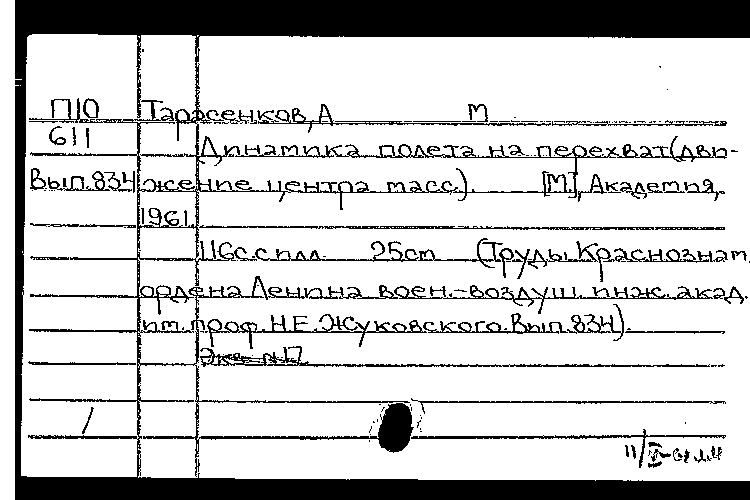 П10 Тарасенков, А М
611
Динамика полета на перехват (дви-
Вып.834 жение центра масс). [М.], Академия,
1961.
116с.с илл. 25cm (Труды. Краснознам.
ордена Ленина воен.-воздуш. инж. акад.
им. проф. Н.Е. Жуковского. Вып. 834).
Экз. №17
/